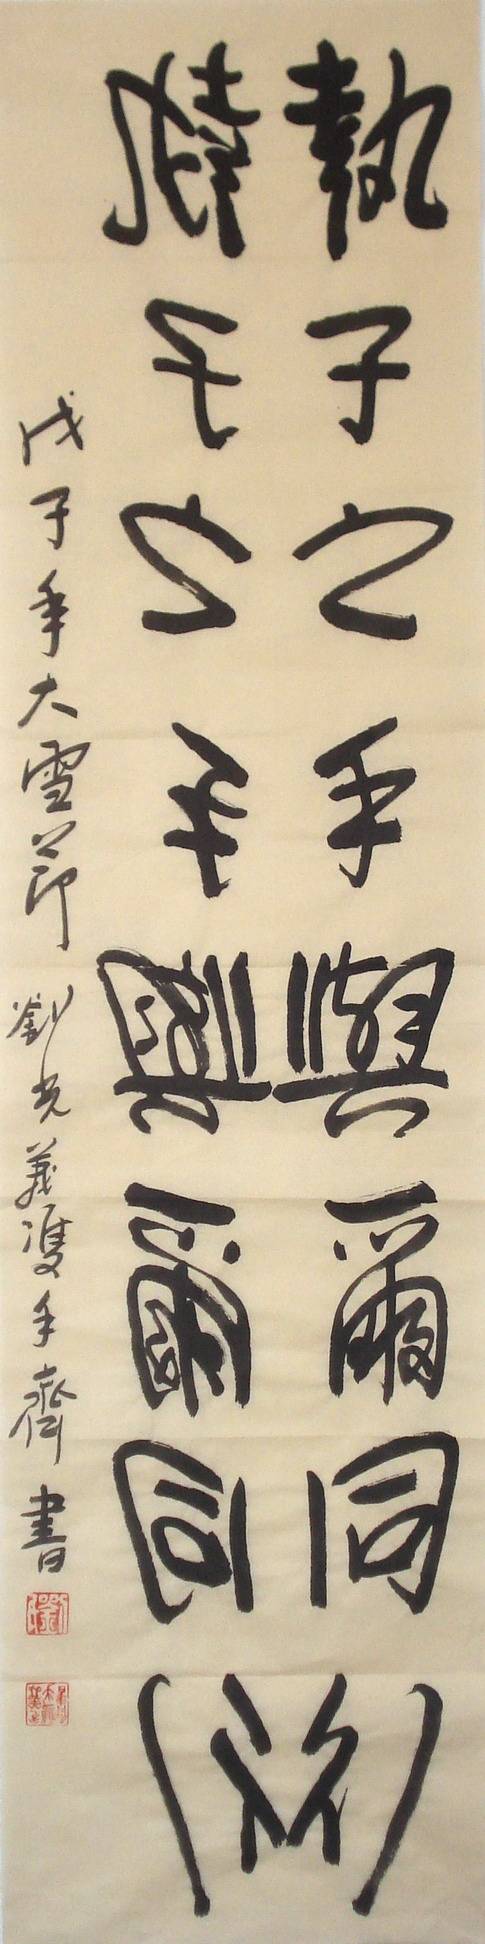 執子之手與爾同行
執子之手與爾同行
戊子年大雪節 劉光義雙手齊書